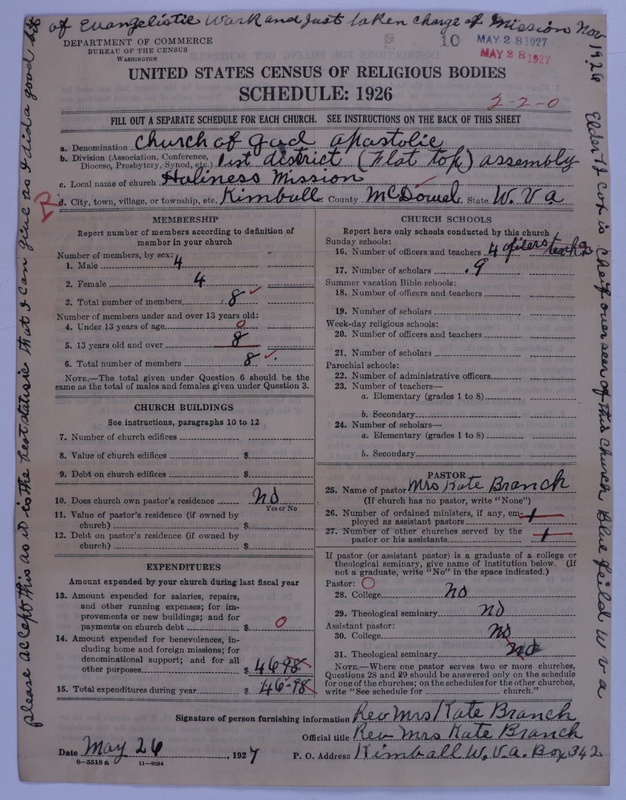 of Evangelistic Work and Just taken charge of Mission Nov 1926
DEPARTMENT OF COMMERCE
BUREAU OF THE CENSUS
WASHINGTON
10
MAY 28 1927
MAY 28 1927
UNITED STATES CENSUS OF RELIGIOUS BODIES
SCHEDULE: 1926
2-2-0
FILL OUT A SEPARATE SCHEDULE FOR EACH CHURCH. SEE INSTRUCTIONS ON THE BACK OF THIS SHEET
a. Denomination Church of God apostolic
b. Division (Association, Conference, Diocese, Presbytery, Synod, etc.) district (Flat top) assembly
c. Local name of church Holiness Mission
d. City, town, village, or township, etc. Kimball County McDowel State W.Va
R
MEMBERSHIP
Report number of members according to definition of
member in your church
Number of members, by sex:
1. Male 4
2. Female 4
3. Total number of members 8
Number of members under and over 13 years old:
4. Under 13 years of age 0
5. 13 years old and over 8
6. Total number of members 8
NOTE.—The total given under Question 6 should be
same as the total of males and females given under Question 3.
CHURCH BUILDINGS
See instructions, paragraphs 10 to 12
7. Number of church edifices
8. Value of church edifices $
9. Debt on church edifices $
10. Does church own pastor's residence No
Yes or No
11. Value of pastor's residence (if owned by
church) $
12. Debt on pastor's residence (if owned by
church) $
EXPENDITURES
Amount expended by your church during last fiscal year
13. Amount expended for salaries, repairs,
and other running expenses; for im-
provements or new buildings; and for
payments on church debt $ 0
14. Amount expended for benevolences, in-
cluding home and foreign missions; for
denominational support; and for all
other purposes $ 46-98
15. Total expenditures during year $ 46-98
CHURCH SCHOOLS
Report here only schools conducted by this church
Sunday schools:
16. Number of officers and teachers 4
17. Number of scholars 9
Summer vacation Bible schools:
18. Number of officers and teachers
19. Number of scholars
Week-day religious schools:
20. Number of officers and teachers
21. Number of scholars
Parochial schools:
22. Number of administrative officers
23. Number of teachers—
a. Elementary (grades 1 to 8)
b. Secondary
24. Number of scholars—
a. Elementary (grades 1 to 8)
b. Secondary
PASTOR
25. Name of pastor Mrs Kate Branch
(If church has no pastor, write "None")
26. Number of ordained ministers, if any, em-
ployed as assistant pastors 1
27. Number of other churches served by the
pastor or his assistants 1
If pastor (or assistant pastor) is a graduate of a college or
theological seminary, give name of institution below. (If
not a graduate, write "No" in the space indicated.)
Pastor:
28. College No
29. Theological seminary No
Assistant pastor:
30. College No
31. Theological seminary No
NOTE.—Where one pastor serves two or more churches,
Questions 28 and 29 should be answered only on the schedule
for one of the churches; on the schedules for the other churches,
write "See schedule for church."
Signature of person furnishing information Rev Mrs Kate Branch
Official title Rev Mrs Kate Branch
Date May 26, 1927 P. O. Address Kimball W.V.a. Box 342
8—5518a 11—9064
please accept this as it is the best that I can give as I did a good bit
Elder is Chief over seer of this church Blue feild W Va